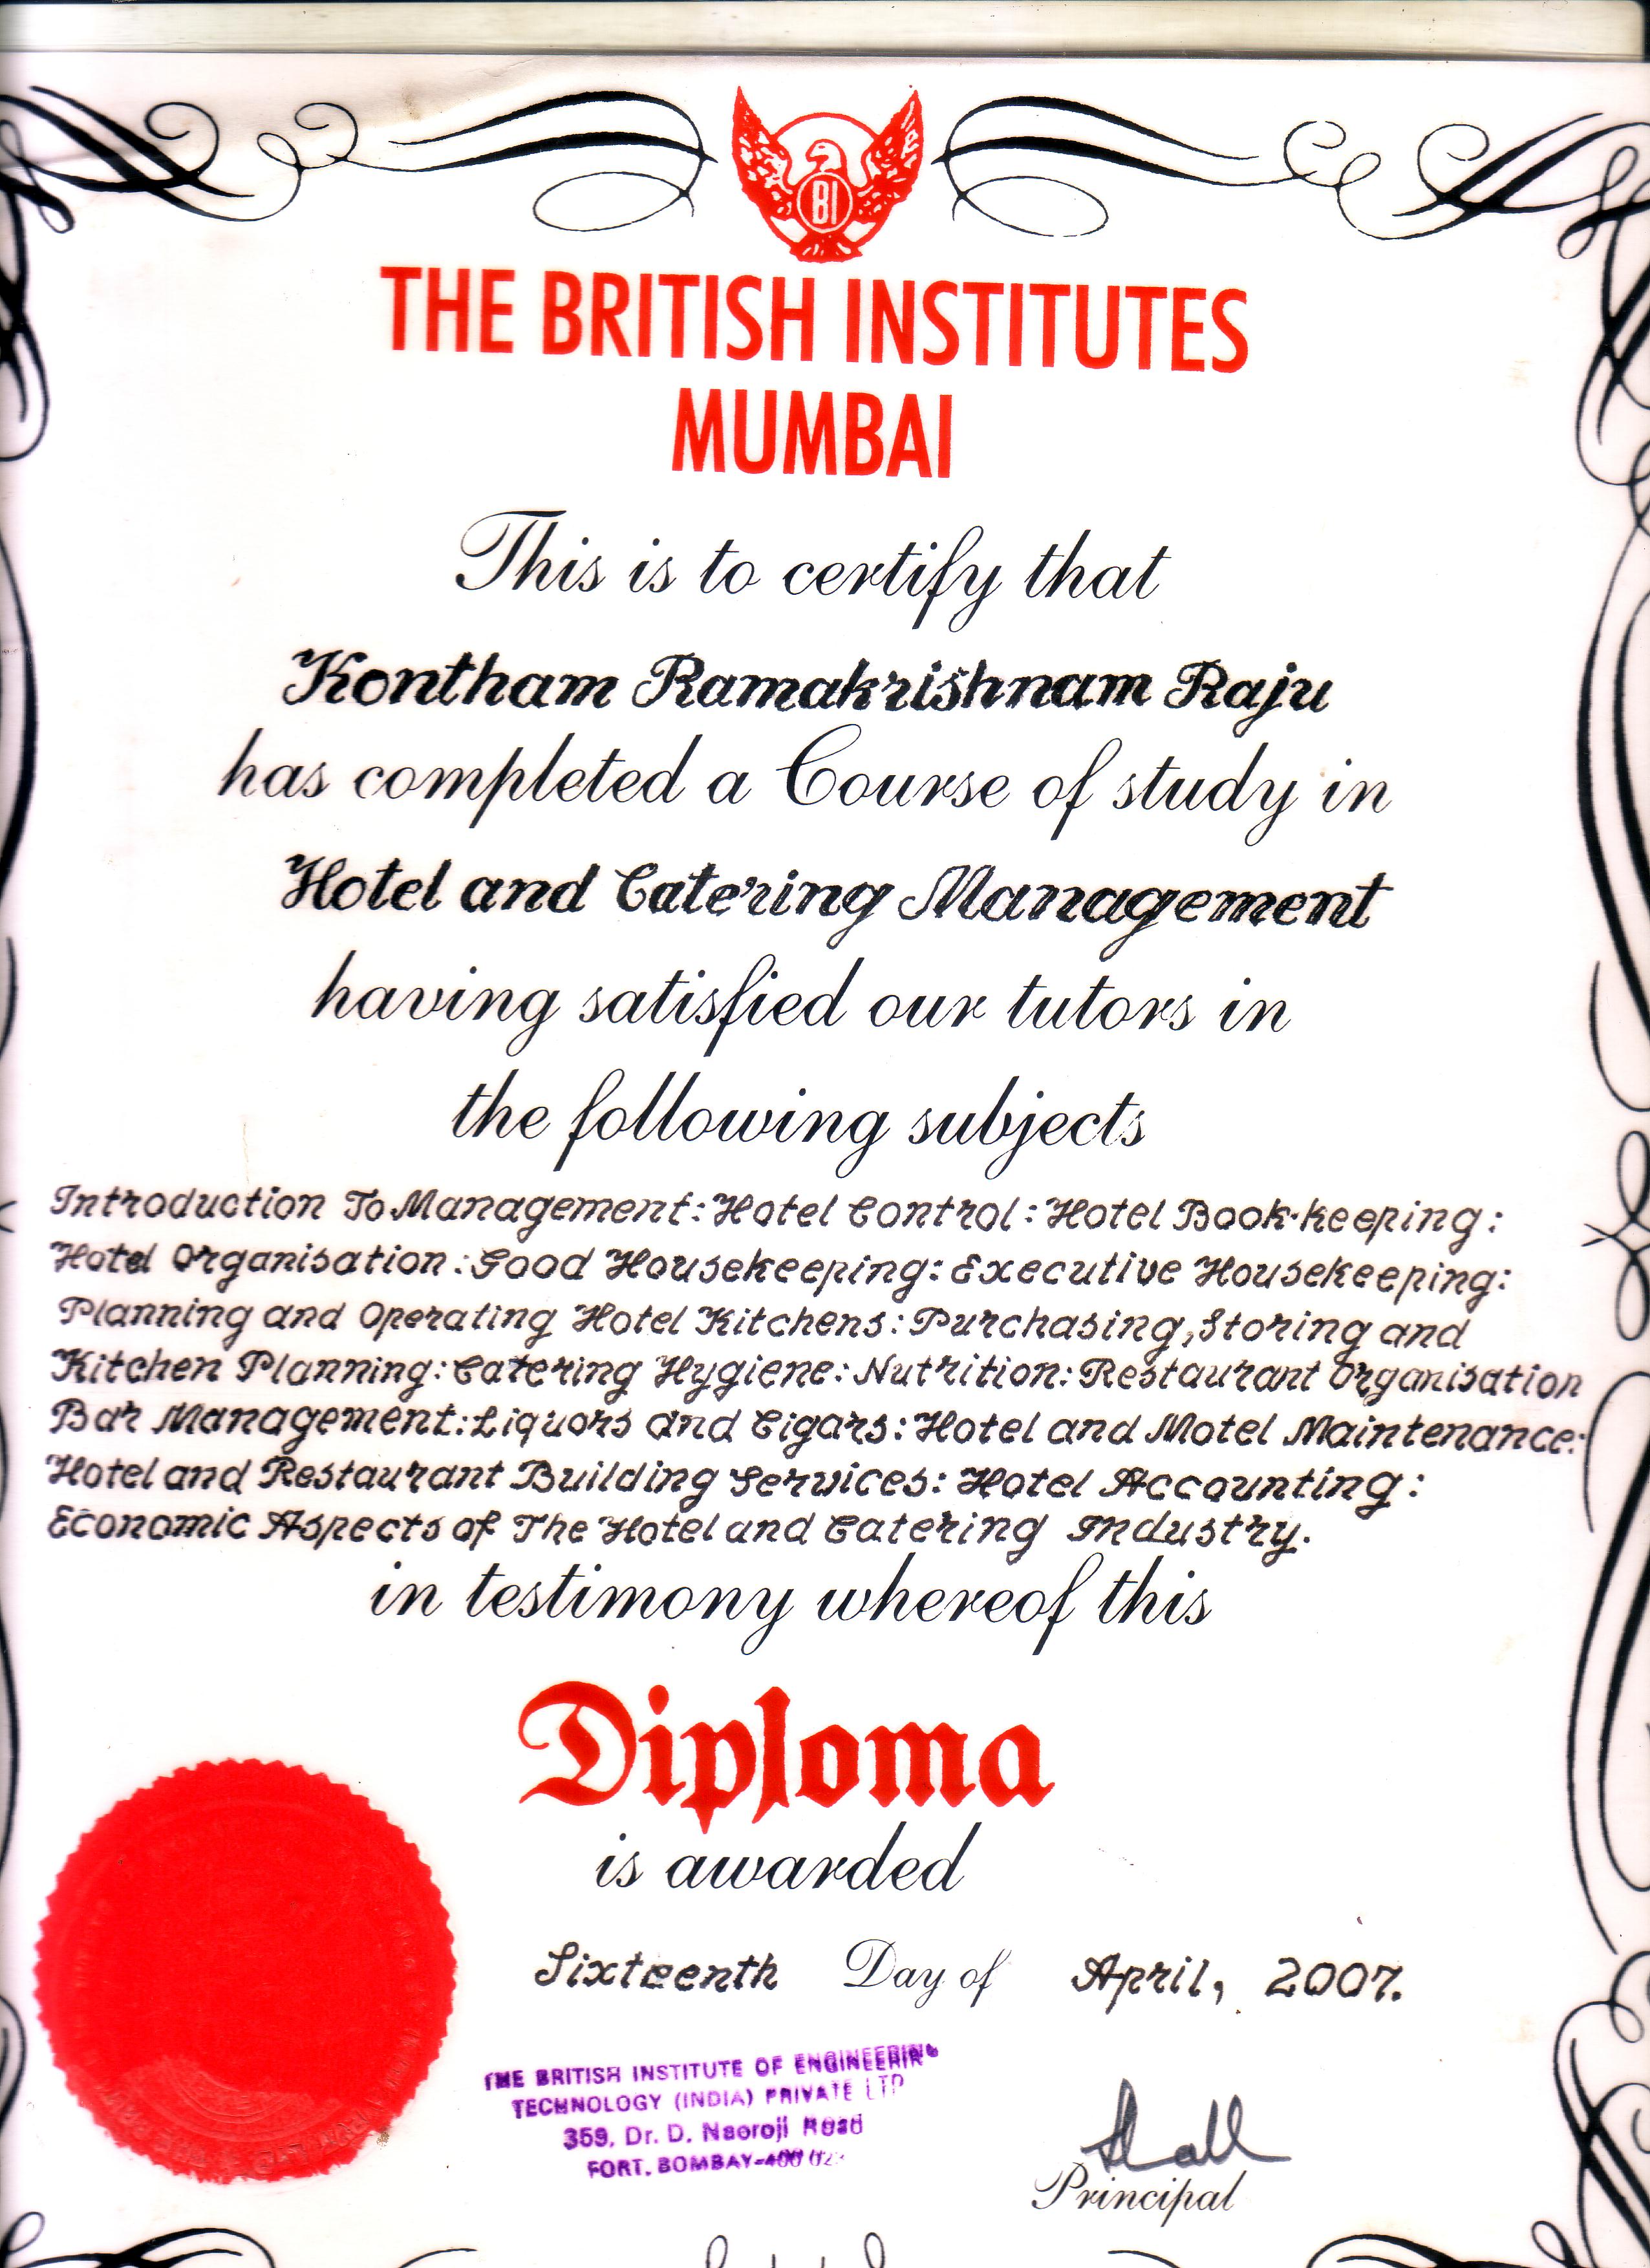 BI
THE BRITISH INSTITUTES
MUMBAI
This is to certify that
Kontham Ramakrishnam Raju
has completed a Course of study in
Hotel and Catering Management
having satisfied our tutors in
the following subjects
Introduction To Management: Hotel Control: Hotel Book-keeping:
Hotel Organisation: Good Housekeeping: Executive Housekeeping:
Planning and Operating Hotel Kitchens: Purchasing, Storing and
Kitchen Planning: Catering Hygiene: Nutrition: Restaurant Organisation
Bar Management: Liquors and Cigars: Hotel and Motel Maintenance:
Hotel and Restaurant Building Services: Hotel Accounting:
Economic Aspects of The Hotel and Catering Industry.
in testimony whereof this
Diploma
is awarded
Sixteenth Day of April, 2007.
THE BRITISH INSTITUTE OF ENGINEERING
TECHNOLOGY (INDIA) PRIVATE LTD
359, Dr. D. Naoroji Road
FORT. BOMBAY-400
Principal